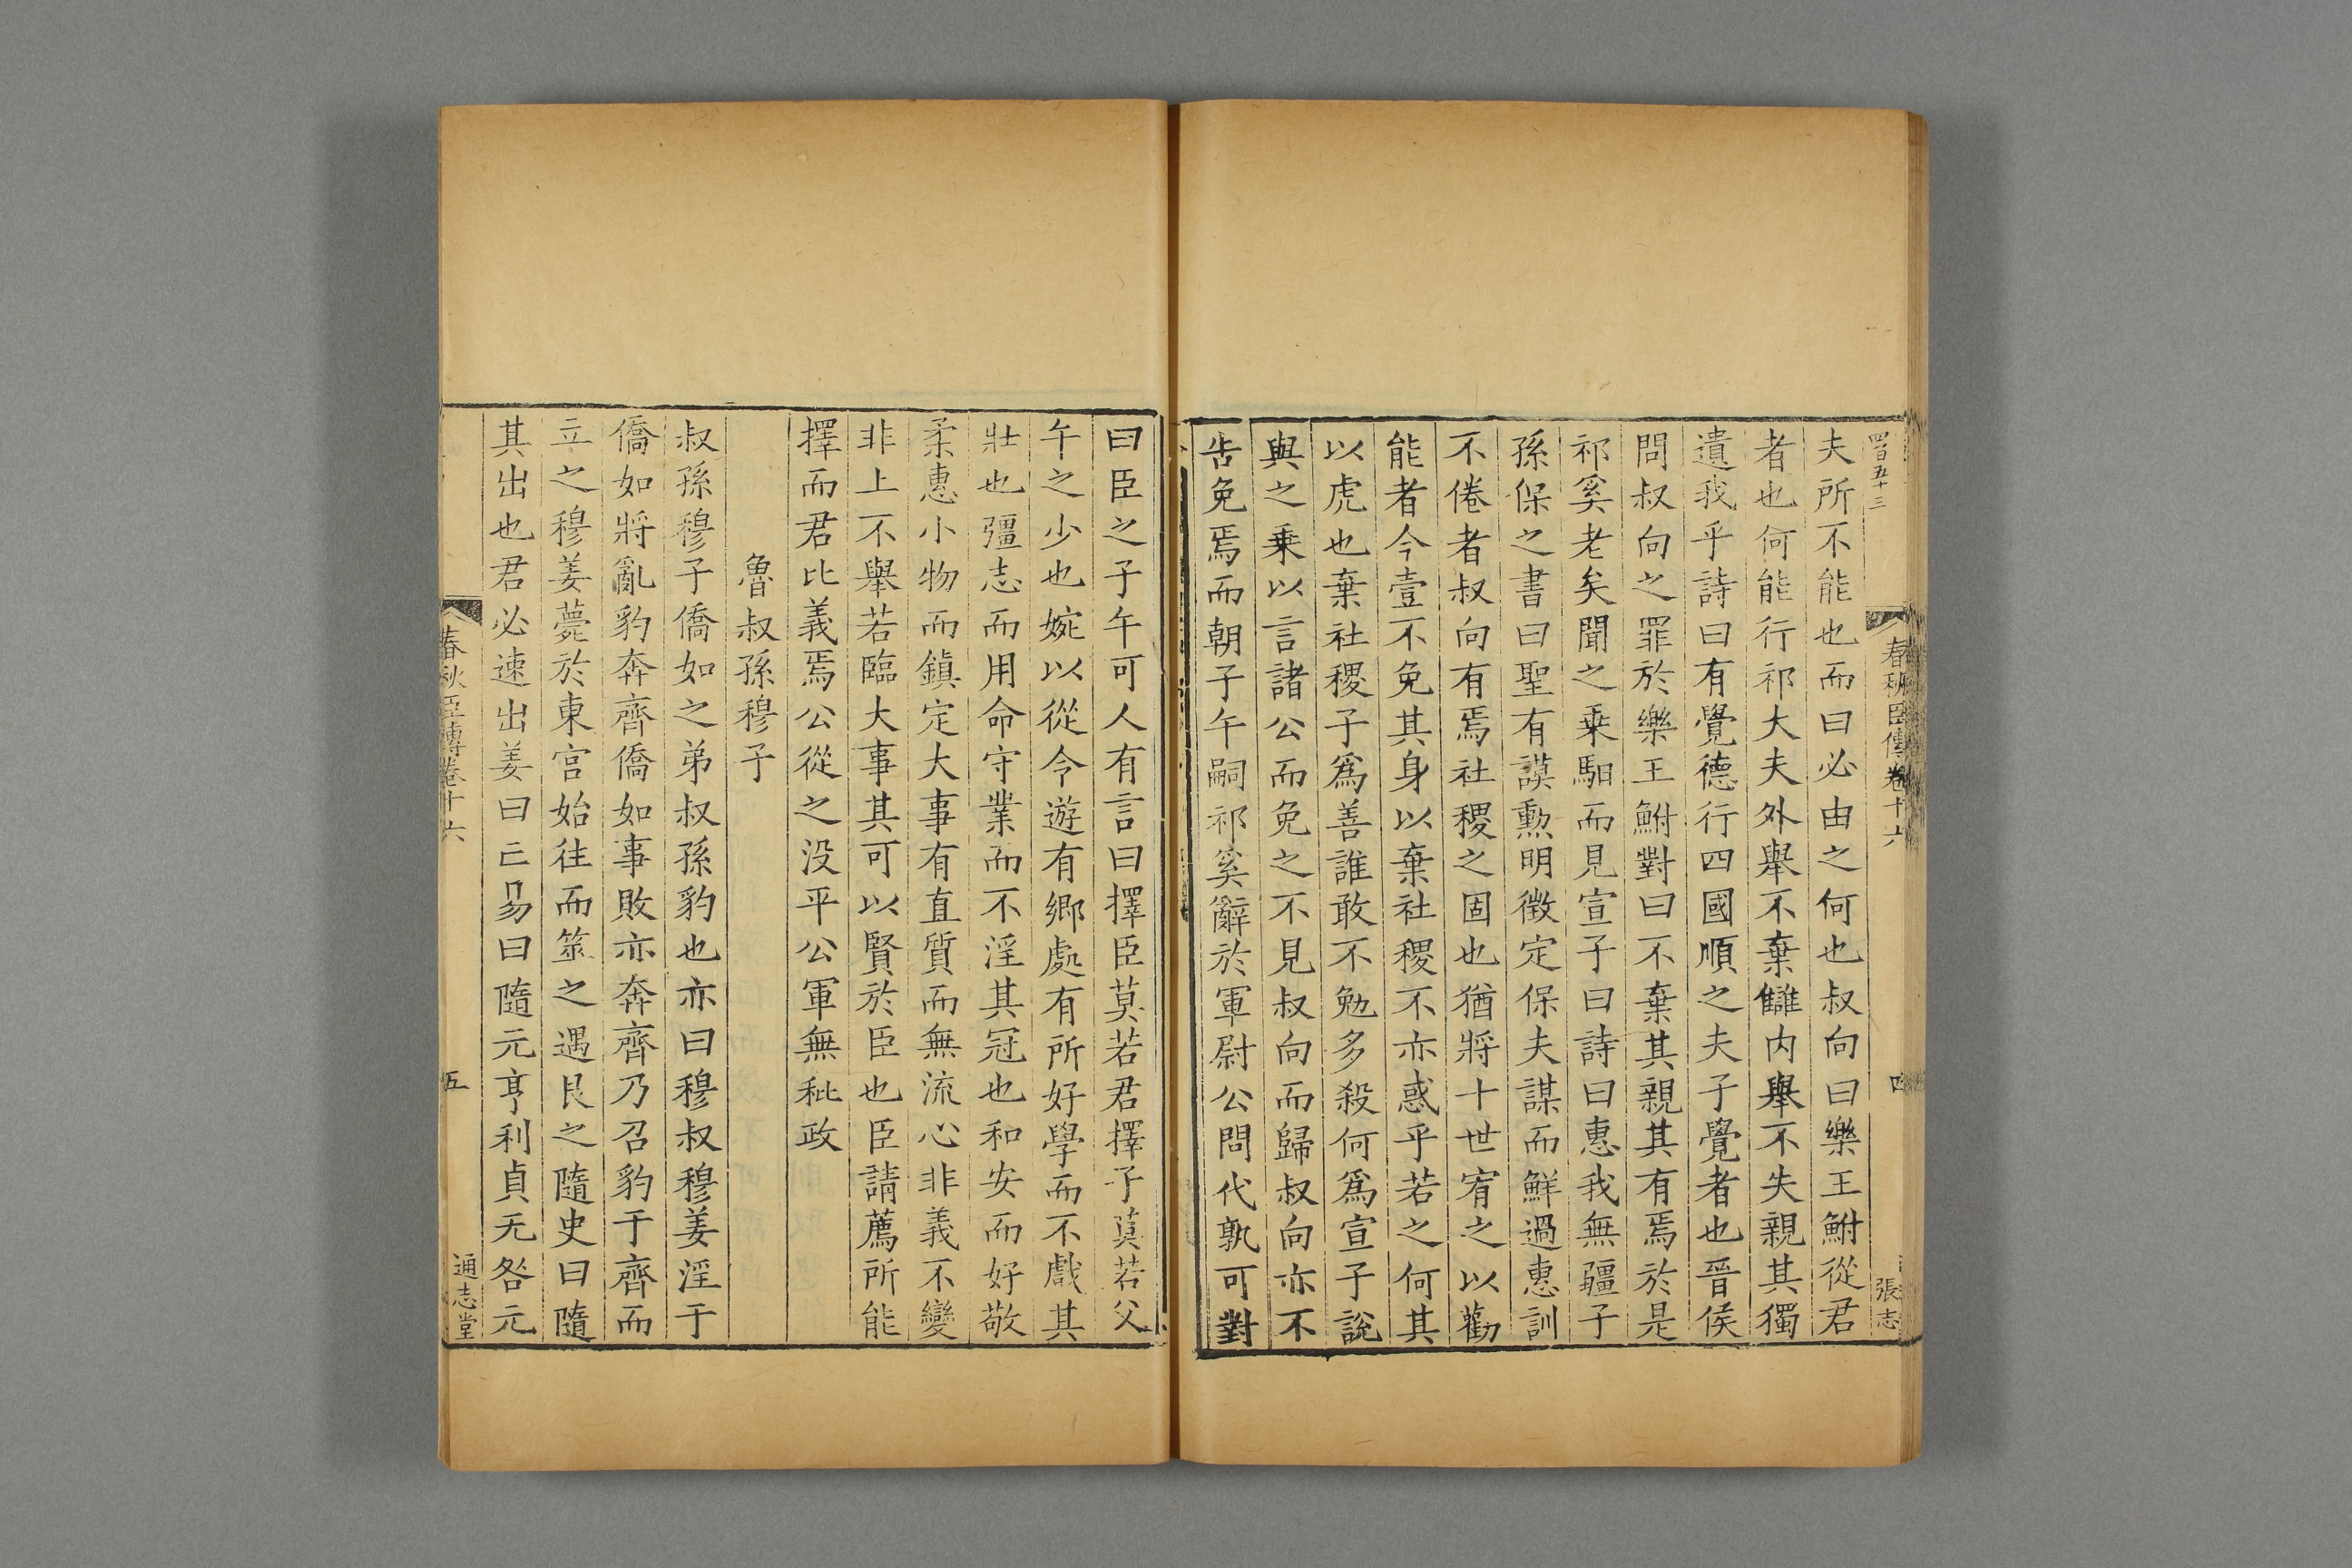 四百五十三
春秋臣傳卷十六
四
張志
夫所不能也而曰必由之何也叔向曰樂王鮒從君
者也何能行祁大夫外舉不棄讎内舉不失親其獨
遺我乎詩曰有覺德行四國順之夫子覺者也晉侯
問叔向之罪於樂王鮒對曰不棄其親其有焉於是
祁奚老矣聞之乗馹而見宣子曰詩曰惠我無疆子
孫保之書曰聖有謨勲明徵定保夫謀而鮮過惠訓
不倦者叔向有焉社稷之固也猶將十世宥之以勸
能者今壹不免其身以棄社稷不亦惑乎若之何其
以虎也棄社稷子爲善誰敢不勉多殺何爲宣子說
與之乗以言諸公而免之不見叔向而歸叔向亦不
告免焉而朝子午嗣祁奚辭於軍尉公問代孰可對
曰臣之子午可人有言曰擇臣莫若君擇子莫若父
午之少也婉以從令遊有鄉處有所好學而不戲其
壯也彊志而用命守業而不淫其冠也和安而好敬
柔惠小物而鎮定大事有直質而無流心非義不變
非上不舉若臨大事其可以賢於臣也臣請薦所能
擇而君比義焉公從之没平公軍無秕政
魯叔孫穆子
叔孫穆子僑如之弟叔孫豹也亦曰穆叔穆姜淫于
僑如將亂豹奔齊僑如事敗亦奔齊乃召豹于齊而
立之穆姜薨於東宫始往而筮之遇艮之隨史曰隨
其出也君必速出姜曰亡易曰隨元亨利貞无咎元
春秋臣傳卷十六
五
通志堂